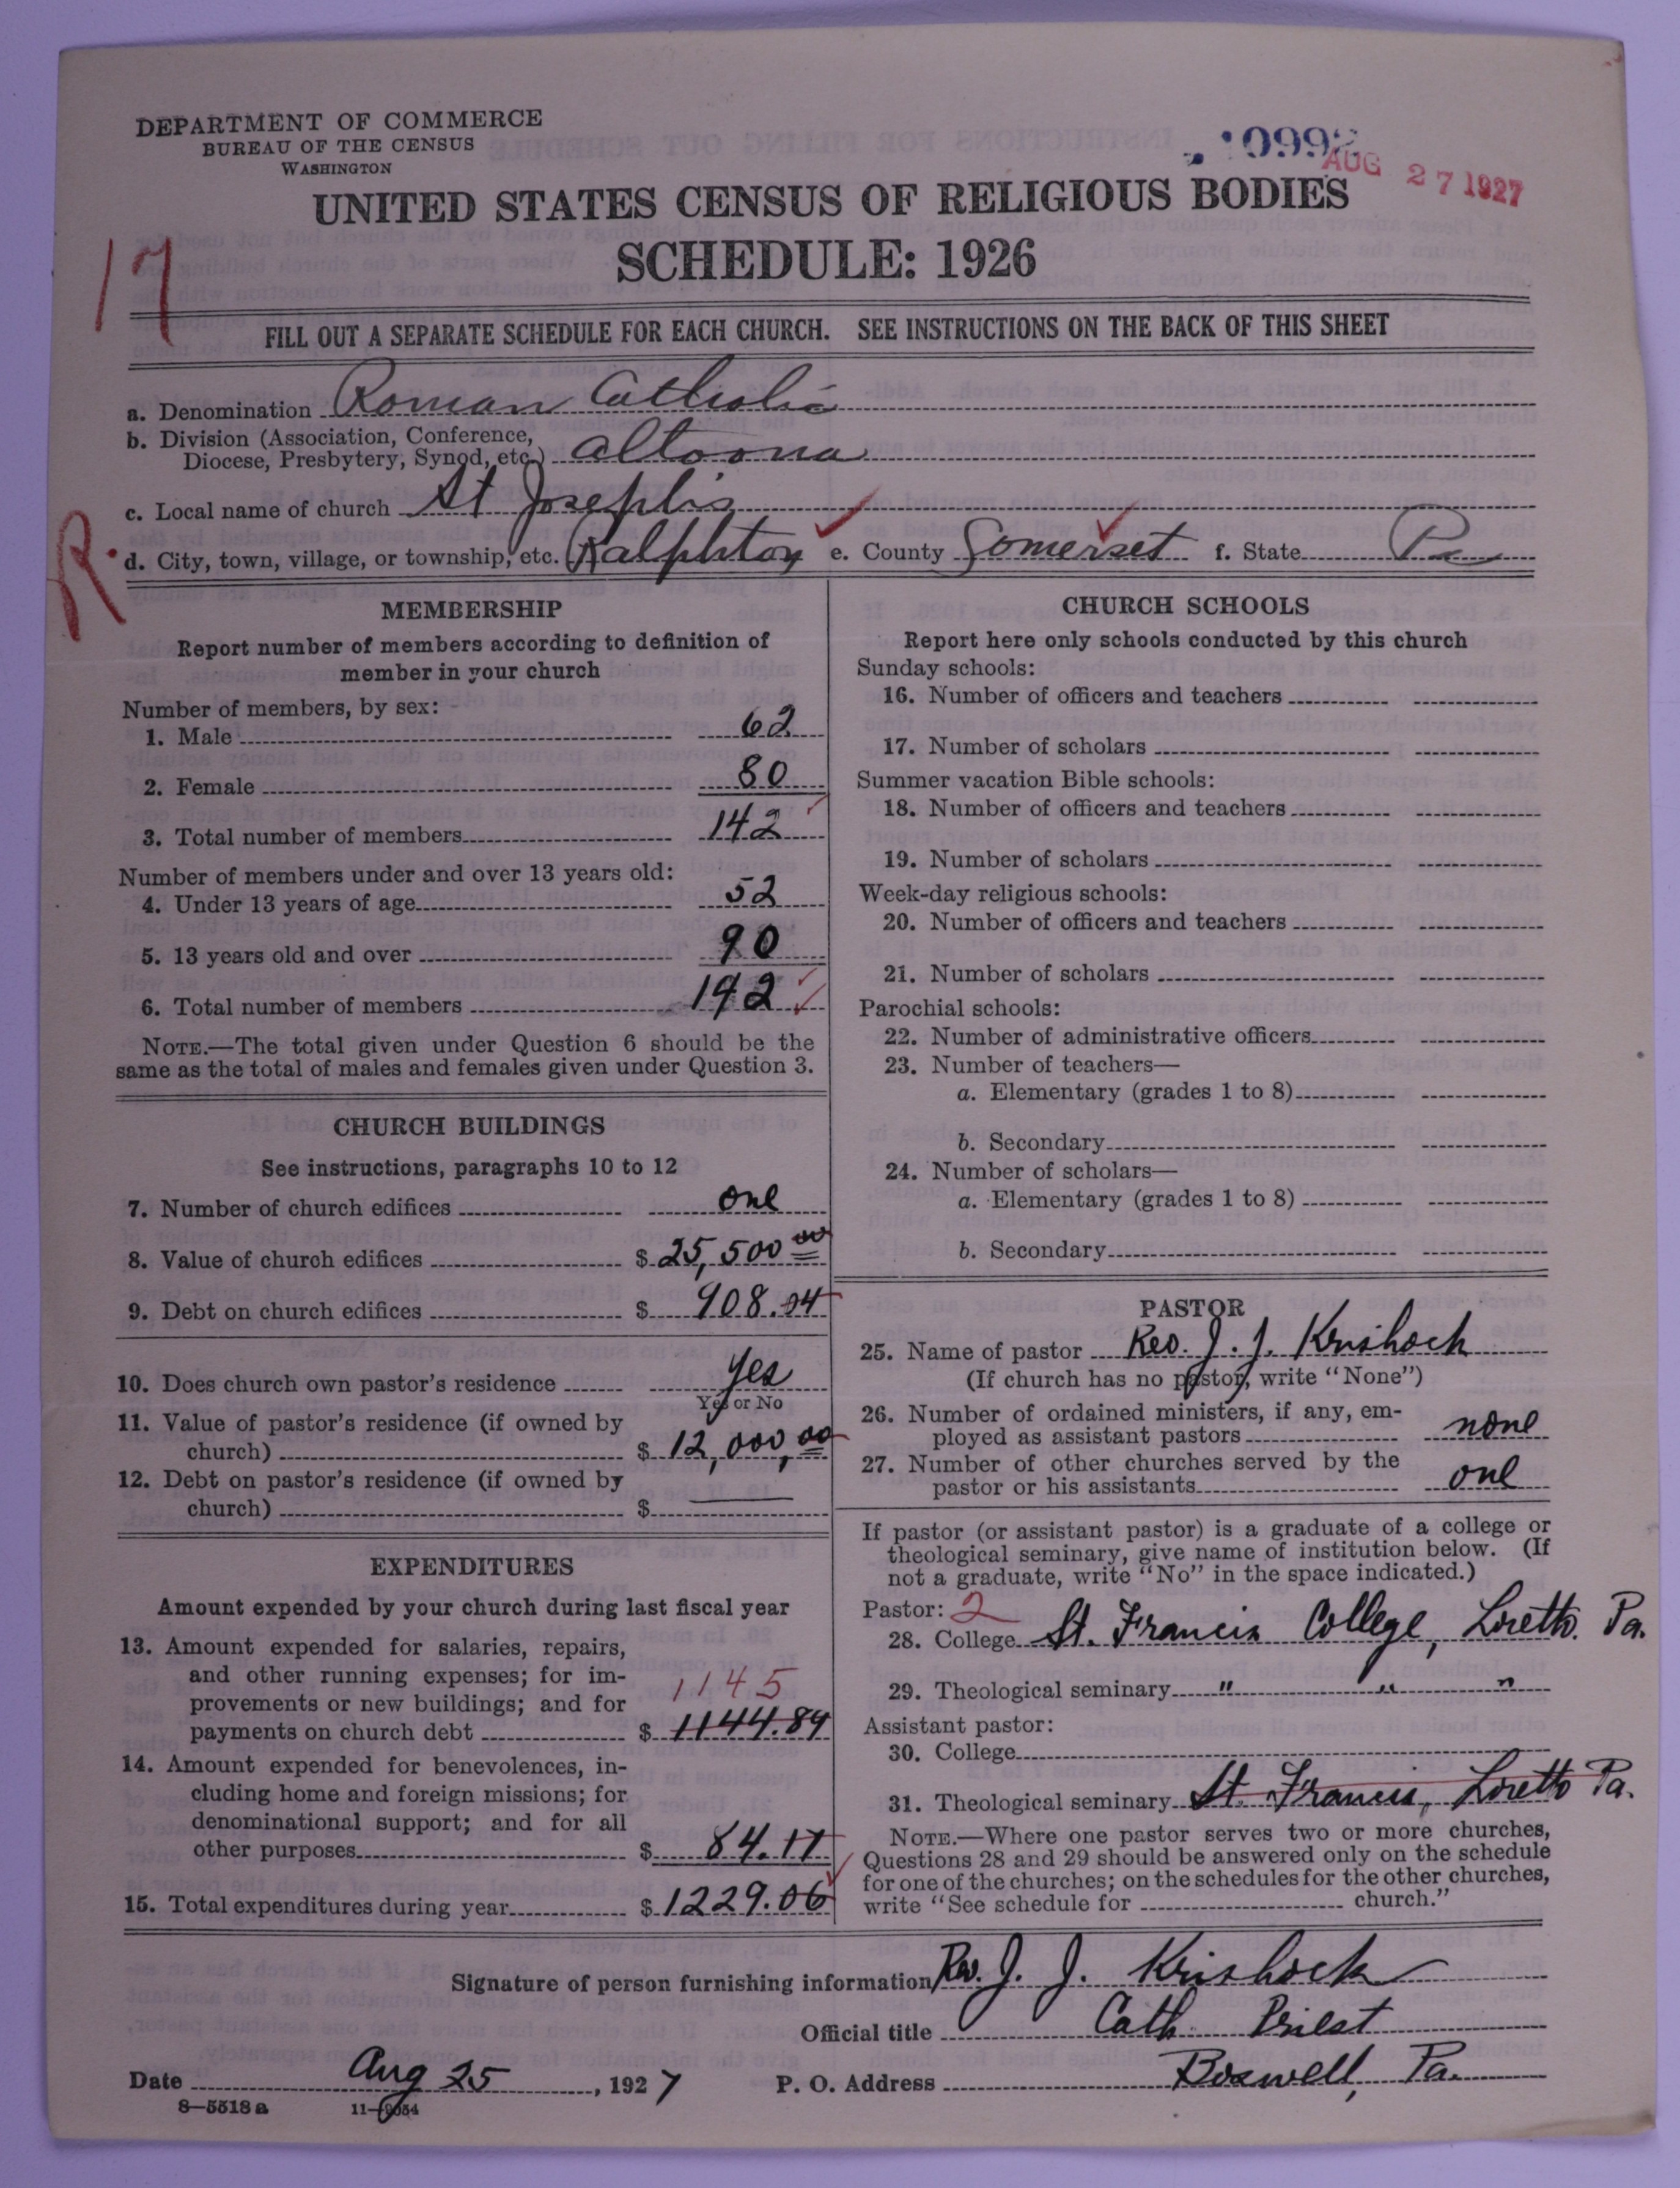 DEPARTMENT OF COMMERCE
BUREAU OF THE CENSUS
WASHINGTON
AUG 27 1927
UNITED STATES CENSUS OF RELIGIOUS BODIES
SCHEDULE: 1926
17
FILL OUT A SEPARATE SCHEDULE FOR EACH CHURCH. SEE INSTRUCTIONS ON THE BACK OF THIS SHEET
a. Denomination Roman Catholic
b. Division (Association, Conference,
Diocese, Presbytery, Synod, etc.) Altoona
c. Local name of church St Joseph's
R.
d. City, town, village, or township, etc. Ralphton e. County Somerset f. State Pa
MEMBERSHIP
Report number of members according to definition of
member in your church
Number of members, by sex:
1. Male 62
2. Female 80
3. Total number of members 142
Number of members under and over 13 years old:
4. Under 13 years of age 52
5. 13 years old and over 90
6. Total number of members 142
NOTE.—The total given under Question 6 should be the
same as the total of males and females given under Question 3.
CHURCH BUILDINGS
See instructions, paragraphs 10 to 12
7. Number of church edifices one
8. Value of church edifices $ 25,500 00
9. Debt on church edifices $ 908.04
10. Does church own pastor's residence yes
Yes or No
11. Value of pastor's residence (if owned by
church) $ 12,000,00
12. Debt on pastor's residence (if owned by
church) $
EXPENDITURES
Amount expended by your church during last fiscal year
13. Amount expended for salaries, repairs,
and other running expenses; for im-
provements or new buildings; and for 1145
payments on church debt $ 1144.89
14. Amount expended for benevolences, in-
cluding home and foreign missions; for
denominational support; and for all
other purposes $ 84.17
15. Total expenditures during year $ 1229.06
CHURCH SCHOOLS
Report here only schools conducted by this church
Sunday schools:
16. Number of officers and teachers
17. Number of scholars
Summer vacation Bible schools:
18. Number of officers and teachers
19. Number of scholars
Week-day religious schools:
20. Number of officers and teachers
21. Number of scholars
Parochial schools:
22. Number of administrative officers
23. Number of teachers—
a. Elementary (grades 1 to 8)
b. Secondary
24. Number of scholars—
a. Elementary (grades 1 to 8)
b. Secondary
PASTOR
25. Name of pastor Rev. J. J. Krishock
(If church has no pastor, write "None")
26. Number of ordained ministers, if any, em-
ployed as assistant pastors none
27. Number of other churches served by the
pastor or his assistants one
If pastor (or assistant pastor) is a graduate of a college or
theological seminary, give name of institution below. (If
not a graduate, write "No" in the space indicated.)
Pastor: 2
28. College St. Francis College, Loretto. Pa.
29. Theological seminary " " "
Assistant pastor:
30. College
31. Theological seminary St. Francis, Loretto Pa.
NOTE.—Where one pastor serves two or more churches,
Questions 28 and 29 should be answered only on the schedule
for one of the churches; on the schedules for the other churches,
write "See schedule for church."
Signature of person furnishing information Rev. J. J. Krishock
Official title Cath. Priest
Date Aug 25, 1927 P. O. Address Boswell, Pa.
8—5518a 11—9054